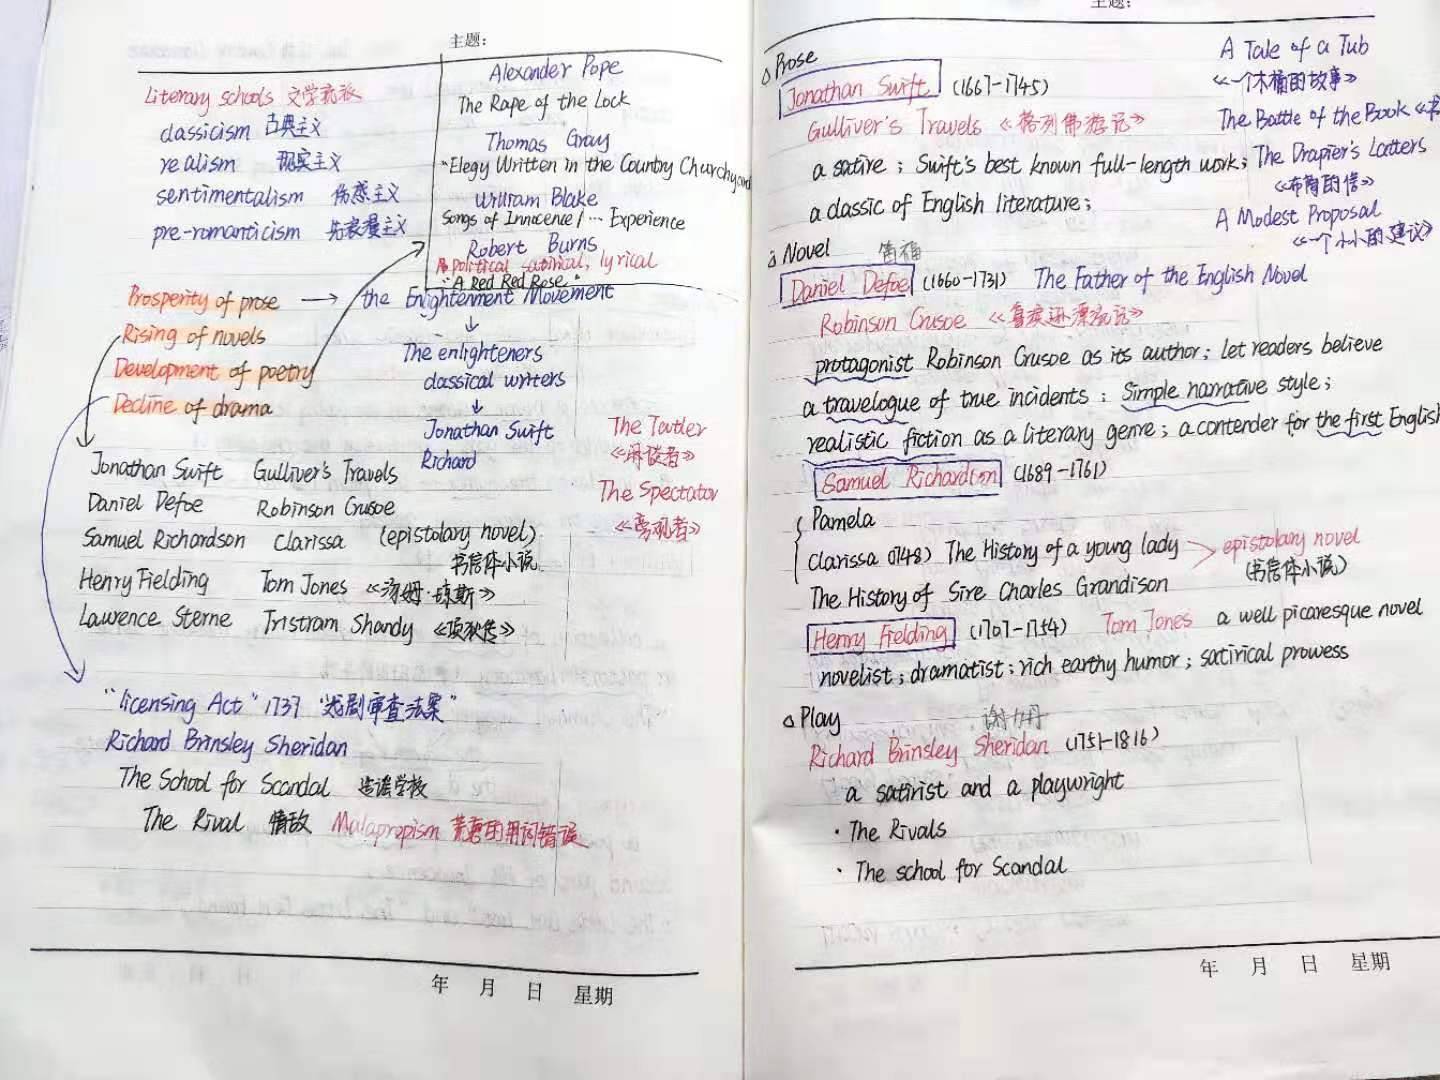 主题:
Literary schools 文学流派
classicism 古典主义
realism 现实主义
sentimentalism 伤感主义
pre-romanticism 先浪漫主义
Alexander Pope
The Rape of the Lock
Thomas Gray
"Elegy Written in the Country Churchyard
William Blake
Songs of Innocence / ... Experience
Robert Burns
political satirical, lyrical
"A Red Red Rose"
Prosperity of prose → the Enlightenment Movement
Rising of novels
Development of poetry
Decline of drama
↓
The enlighteners
classical writers
↓
Jonathan Swift
Richard
The Tatler
《闲谈者》
The Spectator
《旁观者》
Jonathan Swift Gulliver's Travels
Daniel Defoe Robinson Crusoe
Samuel Richardson Clarissa (epistolary novel)
书信体小说
Henry Fielding Tom Jones 《汤姆·琼斯》
Lawrence Sterne Tristram Shandy 《项狄传》
"licensing Act" 1737 "戏剧审查法案"
Richard Brinsley Sheridan
The School for Scandal 造谣学校
The Rival 情敌 Malapropism 荒唐的用词错误
年 月 日 星期
主题:
Prose
Jonathan Swift (1667-1745)
Gulliver's Travels 《格列佛游记》
a satire; Swift's best known full-length work;
a classic of English literature;
A Tale of a Tub
《一个木桶的故事》
The Battle of the Book 《书
The Drapier's Latters
《布商的信》
A Modest Proposal
《一个小小的建议》
Novel 笛福
Daniel Defoe (1660-1731) The Father of the English Novel
Robinson Crusoe 《鲁滨逊漂流记》
protagonist Robinson Crusoe as its author; let readers believe
a travelogue of true incidents; Simple narrative style;
realistic fiction as a literary genre; a contender for the first English
Samuel Richardson (1689-1761)
Pamela
Clarissa (1748) The History of a young lady
epistolary novel
(书信体小说)
The History of Sire Charles Grandison
Henry Fielding (1707-1754) Tom Jones a well picaresque novel
novelist; dramatist; rich earthy humor; satirical prowess
Play 谢立丹
Richard Brinsley Sheridan (1751-1816)
a satirist and a playwright
· The Rivals
· The school for Scandal
年 月 日 星期